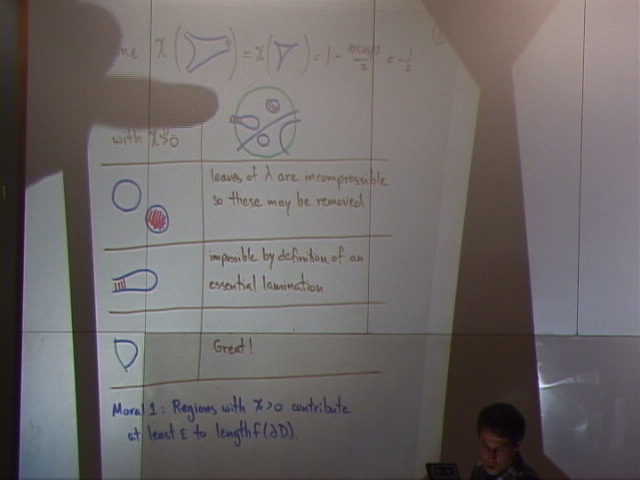 χ ( ) = χ ( ) = 1 - = -1/2
with χ
leaves of λ are incompressible
so these may be removed
impossible by definition of an
essential lamination
Great!
Moral 1: Regions with χ>0 contribute
at least ε to length f(∂D).